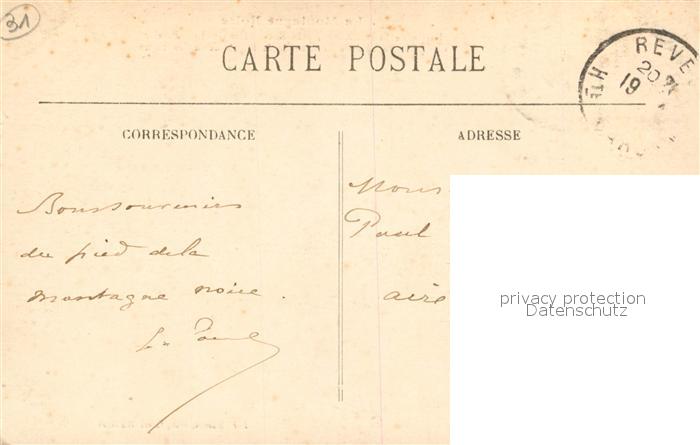 31
CARTE POSTALE
REVE
20
19
CORRESPONDANCE
ADRESSE
Bons souvenirs
du pied de la
montagne noire.
Paul
privacy protection
Datenschutz